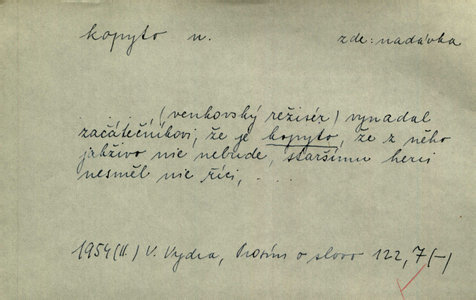 kopyto n. zde: nadávka
. . . . . . (venkovský režisér) vynadal
začátečníkovi, že je kopyto, že z něho
jakživo nic nebude, staršímu herci
nesměl nic říci, . . .
1954 (II.) V. Vydra, Prosím o slovo 122, 7 (–)